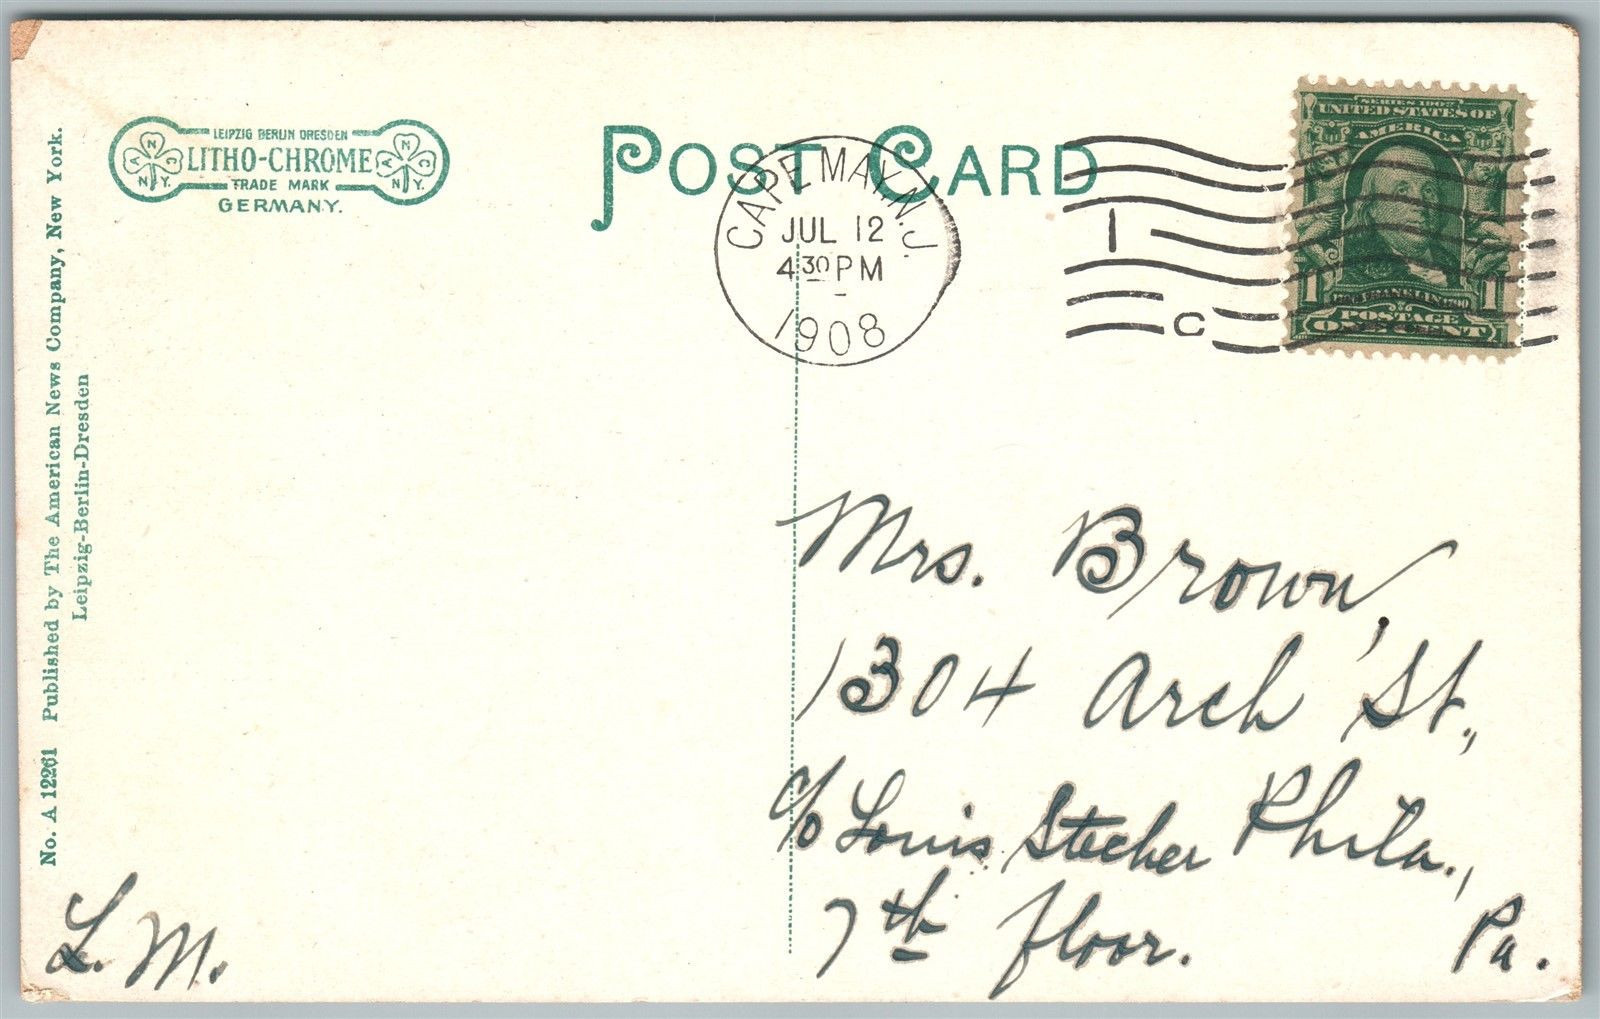 No. A 12261 Published by The American News Company, New York.
Leipzig-Berlin-Dresden
LEIPZIG BERLIN DRESDEN
A N C
N.Y.
LITHO-CHROME
A N C
N.Y.
TRADE MARK
GERMANY.
POST CARD
CAPE MAY, N.J.
JUL 12
4 30 PM
1908
1
C
SERIES 1902
UNITED STATES OF
AMERICA
1 1
POSTAGE
ONE CENT
Mrs. Brown,
1304 Arch St.,
c/o Louis Stecher Phila.,
7th floor. Pa.
L. M.